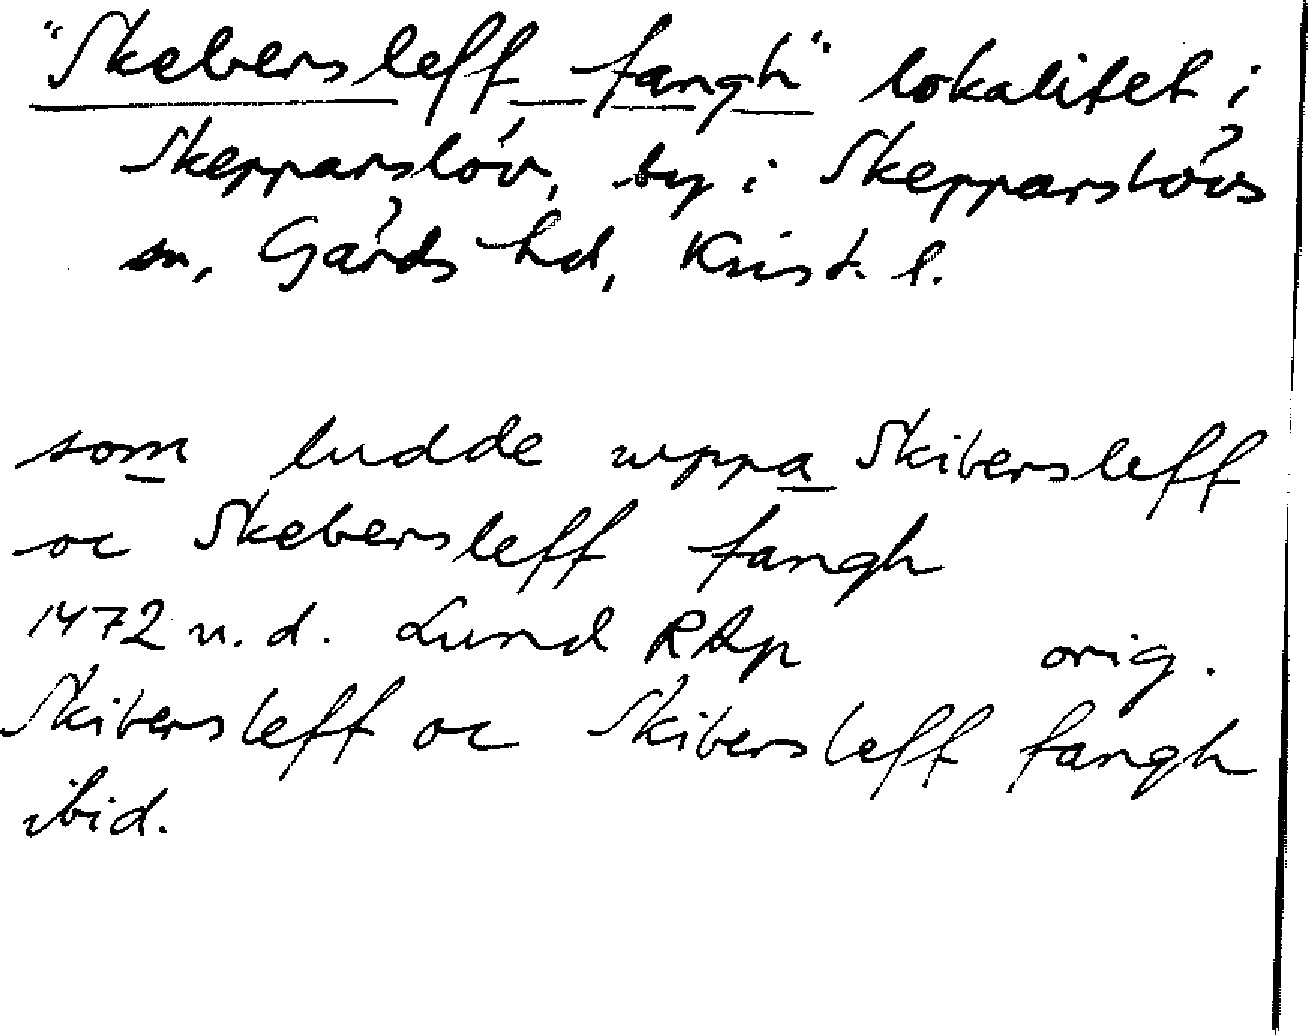 "Skebersleff fangh" lokalitet i
Skepparslöv, by i Skepparslövs
sn, Gärds hd, Krist. l.
som ludde uppa Skibersleff
oc Skebersleff fangh
1472 u.d. Lund RAp orig.
Skibersleff oc Skibersleff fangh
ibid.